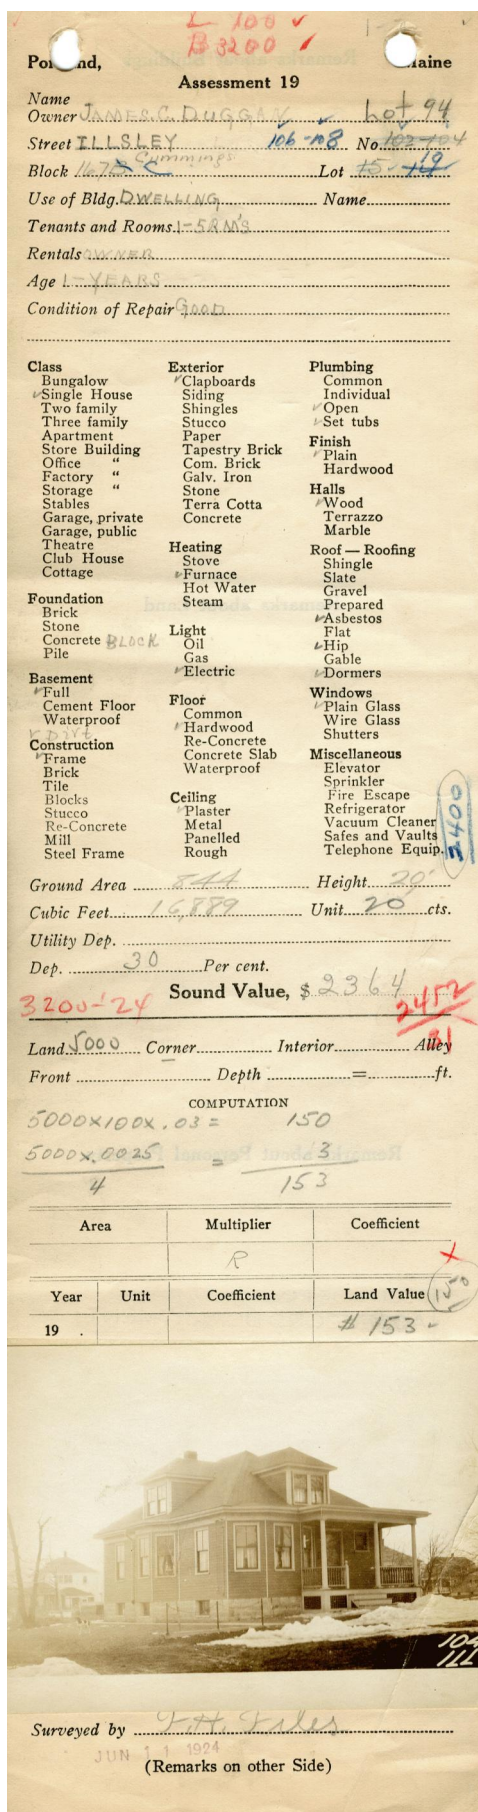 L 100 ✓
B 3200 ✓
Portland, Maine
Assessment 19
Name
Owner JAMES. C. DUGGAN Lot 94
Street ILLSLEY 106-108 No. 102-104
Cummings
Block 167B C Lot 15 14 19
Use of Bldg. DWELLING Name
Tenants and Rooms 1-5RM'S
Rentals OWNER
Age 1-YEARS
Condition of Repair GOOD
Class
Bungalow
✓Single House
Two family
Three family
Apartment
Store Building
Office "
Factory "
Storage "
Stables
Garage, private
Garage, public
Theatre
Club House
Cottage
Foundation
Brick
Stone
Concrete BLOCK
Pile
Basement
✓Full
Cement Floor
Waterproof
✓ Dirt
Construction
✓Frame
Brick
Tile
Blocks
Stucco
Re-Concrete
Mill
Steel Frame
Exterior
✓Clapboards
Siding
Shingles
Stucco
Paper
Tapestry Brick
Com. Brick
Galv. Iron
Stone
Terra Cotta
Concrete
Heating
Stove
✓Furnace
Hot Water
Steam
Light
Oil
Gas
✓Electric
Floor
Common
✓Hardwood
Re-Concrete
Concrete Slab
Waterproof
Ceiling
✓Plaster
Metal
Panelled
Rough
Plumbing
Common
Individual
✓Open
✓Set tubs
Finish
✓Plain
Hardwood
Halls
✓Wood
Terrazzo
Marble
Roof — Roofing
Shingle
Slate
Gravel
Prepared
✓Asbestos
Flat
✓Hip
Gable
✓Dormers
Windows
✓Plain Glass
Wire Glass
Shutters
Miscellaneous
Elevator
Sprinkler
Fire Escape
Refrigerator
Vacuum Cleaner
Safes and Vaults
Telephone Equip.
3400
Ground Area 844 Height 20'
Cubic Feet 16,889 Unit 20 cts.
Utility Dep.
Dep. 30 Per cent.
Sound Value, $ 2364
3200-'24 2452
81
Land 5000 Corner Interior Alley
Front Depth = ft.
COMPUTATION
5000 x 100 x .03 = 150
5000 x .0025 = 3
4 153
Area Multiplier Coefficient
R
x
Year Unit Coefficient Land Value 150
19 . # 153 -
104
ILL
Surveyed by F.H. Files
JUN 11 1924
(Remarks on other Side)